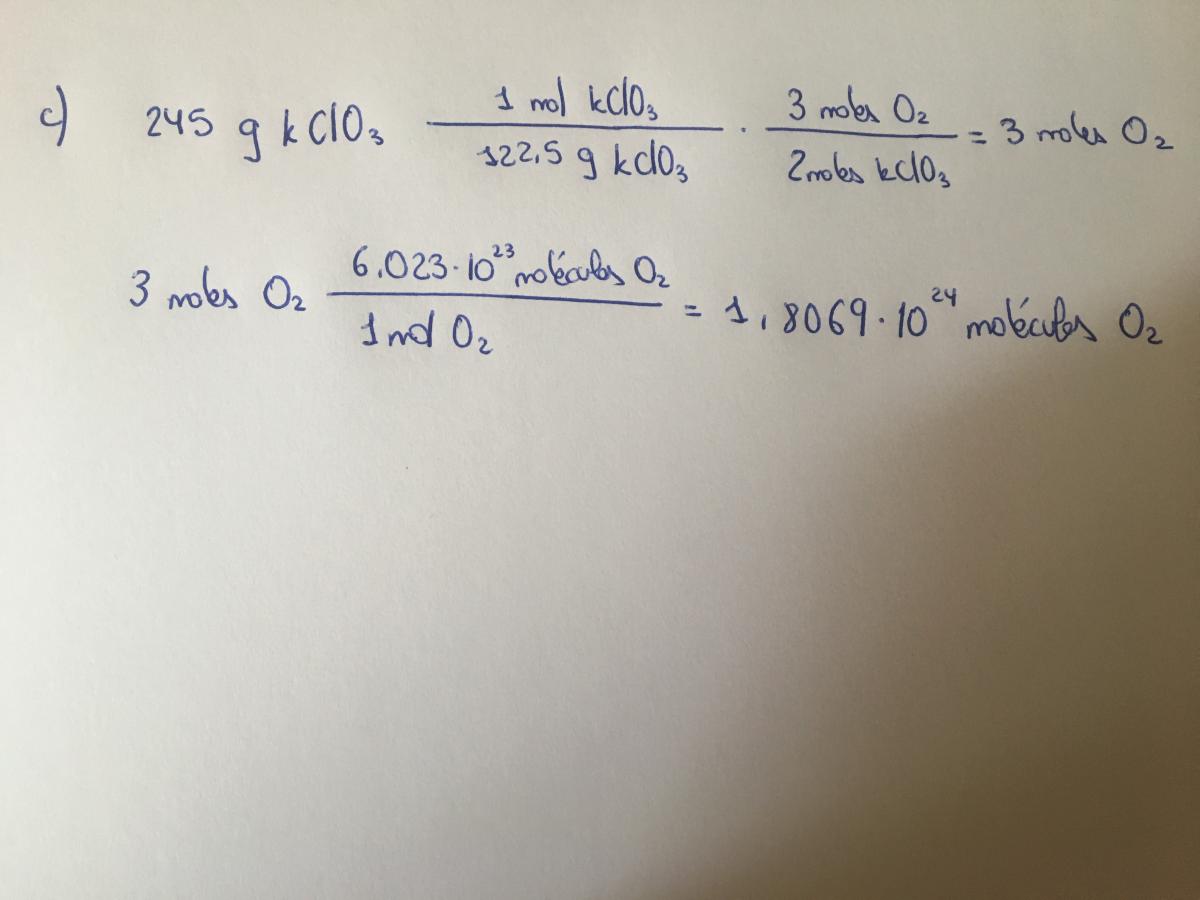 c) 245 g kClO₃ 1 mol kClO₃ / 122,5 g kClO₃ · 3 moles O₂ / 2 moles kClO₃ = 3 moles O₂
3 moles O₂ 6,023·10²³ moléculas O₂ / 1 mol O₂ = 1,8069·10²⁴ moléculas O₂